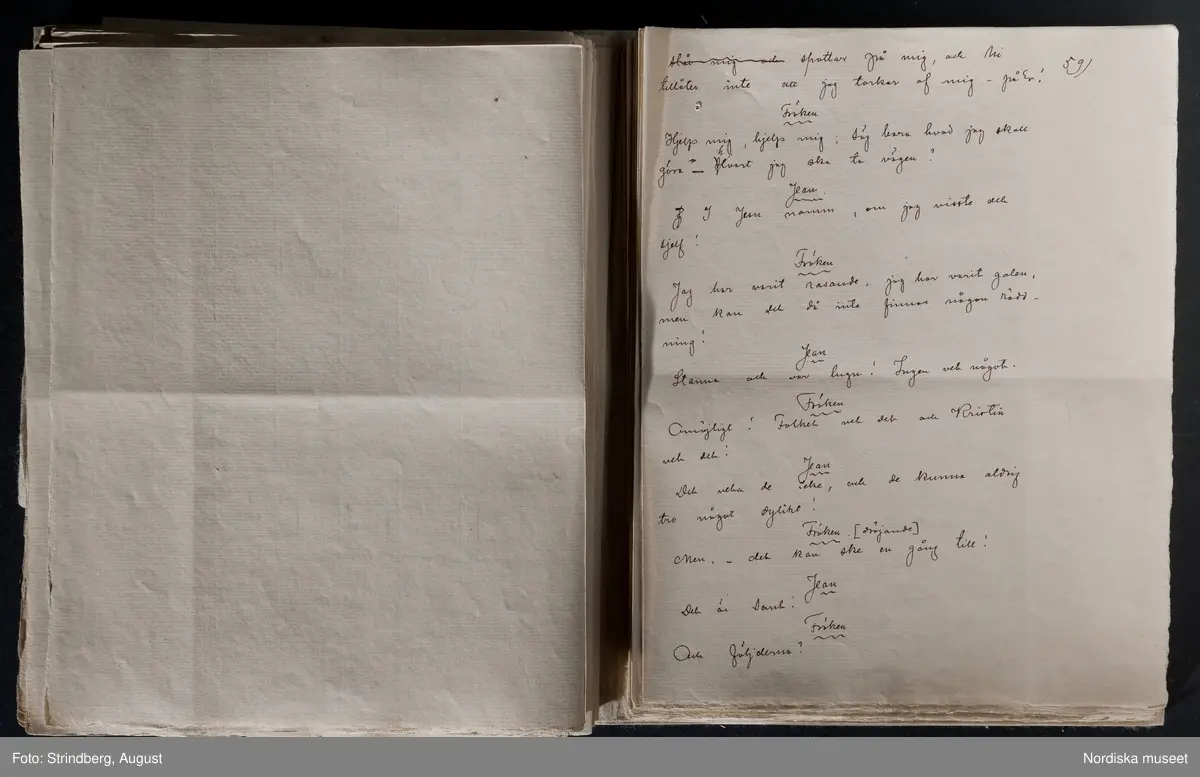 slår mig och spottar på mig, och Ni
59)
tillåter inte att jag torkar af mig – på Er!
Fröken
Hjelp mig, hjelp mig; säg bara hvad jag skall
göra – Hvart jag ska ta vägen?
Jean.
I Jesu namn, om jag visste det
sjelf!
Fröken
Jag har varit rasande, jag har varit galen,
men kan det då inte finnas någon rädd-
ning!
Jean
Stanna och var lugn! Ingen vet något.
Fröken
Omöjligt! Folket vet det och Kristin
vet det!
Jean
Det veta de icke, och de kunna aldrig
tro något dylikt!
Fröken. [dröjande]
Men, – det kan ske en gång till!
Jean
Det är sant!
Fröken
Och följderna?
Foto: Strindberg, August
Nordiska museet